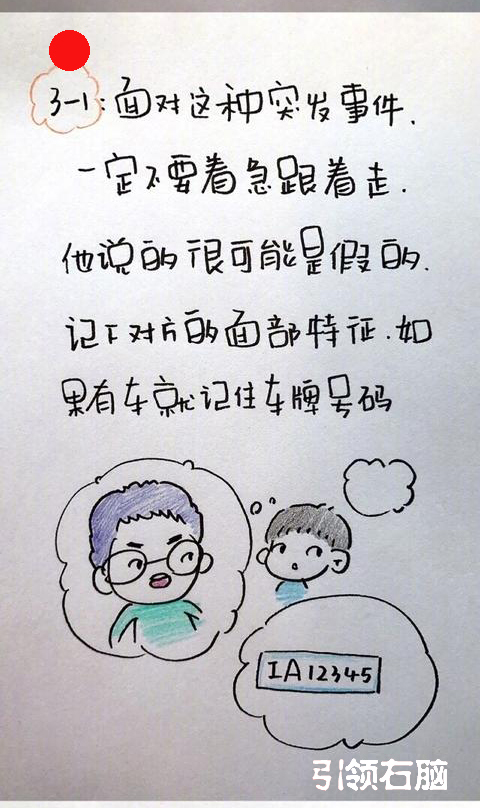 3-1:面对这种突发事件.
一定不要着急跟着走.
他说的很可能是假的.
记下对方的面部特征.如
果有车就记住车牌号码
IA12345
引领右脑